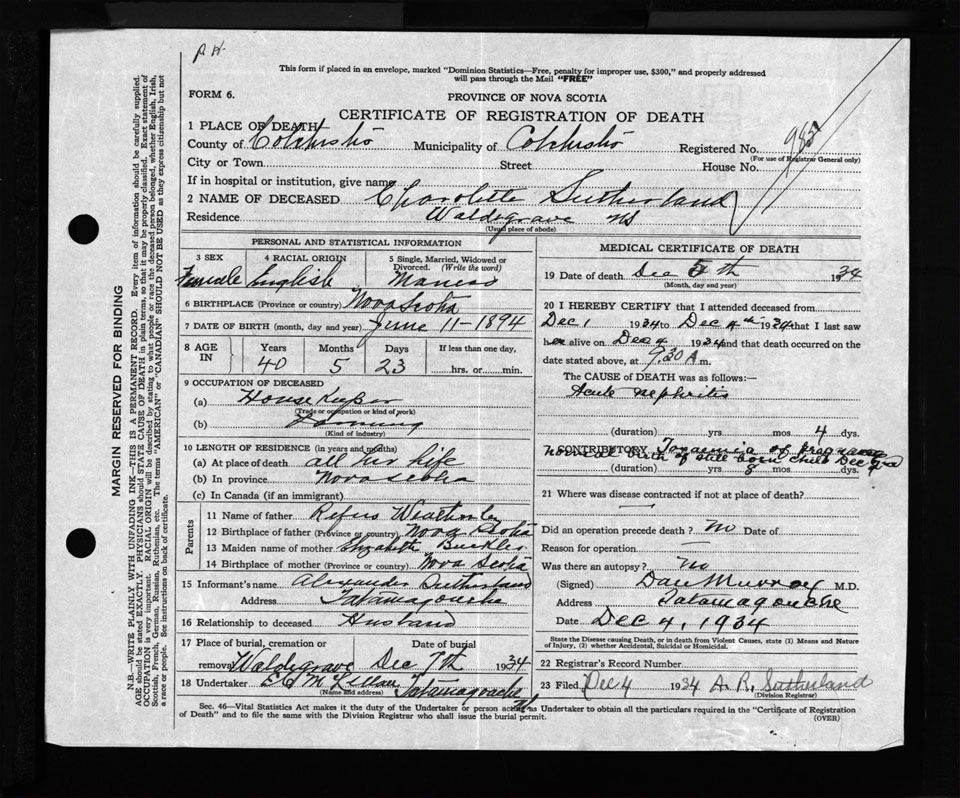 This form if placed in an envelope, marked "Dominion Statistics—Free, penalty for improper use, $300," and properly addressed
will pass through the Mail "FREE"
FORM 6.
PROVINCE OF NOVA SCOTIA
CERTIFICATE OF REGISTRATION OF DEATH
1 PLACE OF DEATH
County of Colchester Municipality of Colchester Registered No. 985
(For use of Registrar General only)
City or Town Street House No.
If in hospital or institution, give name
2 NAME OF DECEASED Charolette Sutherland
Residence Waldegrave NS
(Usual place of abode)
PERSONAL AND STATISTICAL INFORMATION
3 SEX 4 RACIAL ORIGIN 5 Single, Married, Widowed or
Divorced. (Write the word)
Female English Married
6 BIRTHPLACE (Province or country) Nova Scotia
7 DATE OF BIRTH (month, day and year) June 11-1894
8 AGE IN Years Months Days If less than one day,
40 5 23 hrs. or min.
9 OCCUPATION OF DECEASED
(a) House Keeper
(Trade or occupation or kind of work)
(b) Farming
(Kind of industry)
10 LENGTH OF RESIDENCE (in years and months)
(a) At place of death all her life
(b) In province Nova Scotia
(c) In Canada (if an immigrant)
Parents
11 Name of father Rufus Weatherby
12 Birthplace of father (Province or country) Nova Scotia
13 Maiden name of mother Elizabeth Buckler
14 Birthplace of mother (Province or country) Nova Scotia
15 Informant's name Alexander Sutherland
Address Tatamagouche
16 Relationship to deceased Husband
17 Place of burial, cremation or Date of burial
removal Waldegrave Dec 7th 1934
18 Undertaker Tatamagouche NS
(Name and address)
MEDICAL CERTIFICATE OF DEATH
19 Date of death Dec 5th 1934
(Month, day and year)
20 I HEREBY CERTIFY that I attended deceased from
Dec 1 1934 to Dec 4th 1934 that I last saw
her alive on Dec 4 1934 and that death occurred on
date stated above, at 9.30 A m.
The CAUSE of DEATH was as follows:—
Acute Nephritis
(duration) yrs. mos. 4 dys.
CONTRIBUTORY Toxaemia of pregnancy
birth of still born child Dec
(duration) yrs. 8 mos. dys.
21 Where was disease contracted if not at place of death?
Did an operation precede death? No Date of
Reason for operation
Was there an autopsy? No
(Signed) Dan Murray M.D.
Address Tatamagouche
Date Dec 4, 1934
State the Disease causing Death, or in death from Violent Causes, state (1) Means and Nature
of Injury, (2) whether Accidental, Suicidal or Homicidal.
22 Registrar's Record Number
23 Filed Dec 4 1934 A. R. Sutherland
(Division Registrar)
Sec. 46—Vital Statistics Act makes it the duty of the Undertaker or person acting as Undertaker to obtain all the particulars required in the "Certificate of Registration
of Death" and to file the same with the Division Registrar who shall issue the burial permit.
(OVER)
MARGIN RESERVED FOR BINDING
N.B.—WRITE PLAINLY WITH UNFADING INK—THIS IS A PERMANENT RECORD. Every item of information should be carefully supplied.
AGE should be stated EXACTLY. PHYSICIANS should STATE CAUSE OF DEATH in plain terms, so that it may be properly classified. Exact statement of
OCCUPATION is very important. RACIAL ORIGIN will be described by stating to what people or race the deceased person belonged, whether English, Irish,
Scottish, French, German, Russian, Ruthenian, etc. The terms "AMERICAN" or "CANADIAN" SHOULD NOT BE USED as they express citizenship but not
a race or people. See instructions on back of certificate.